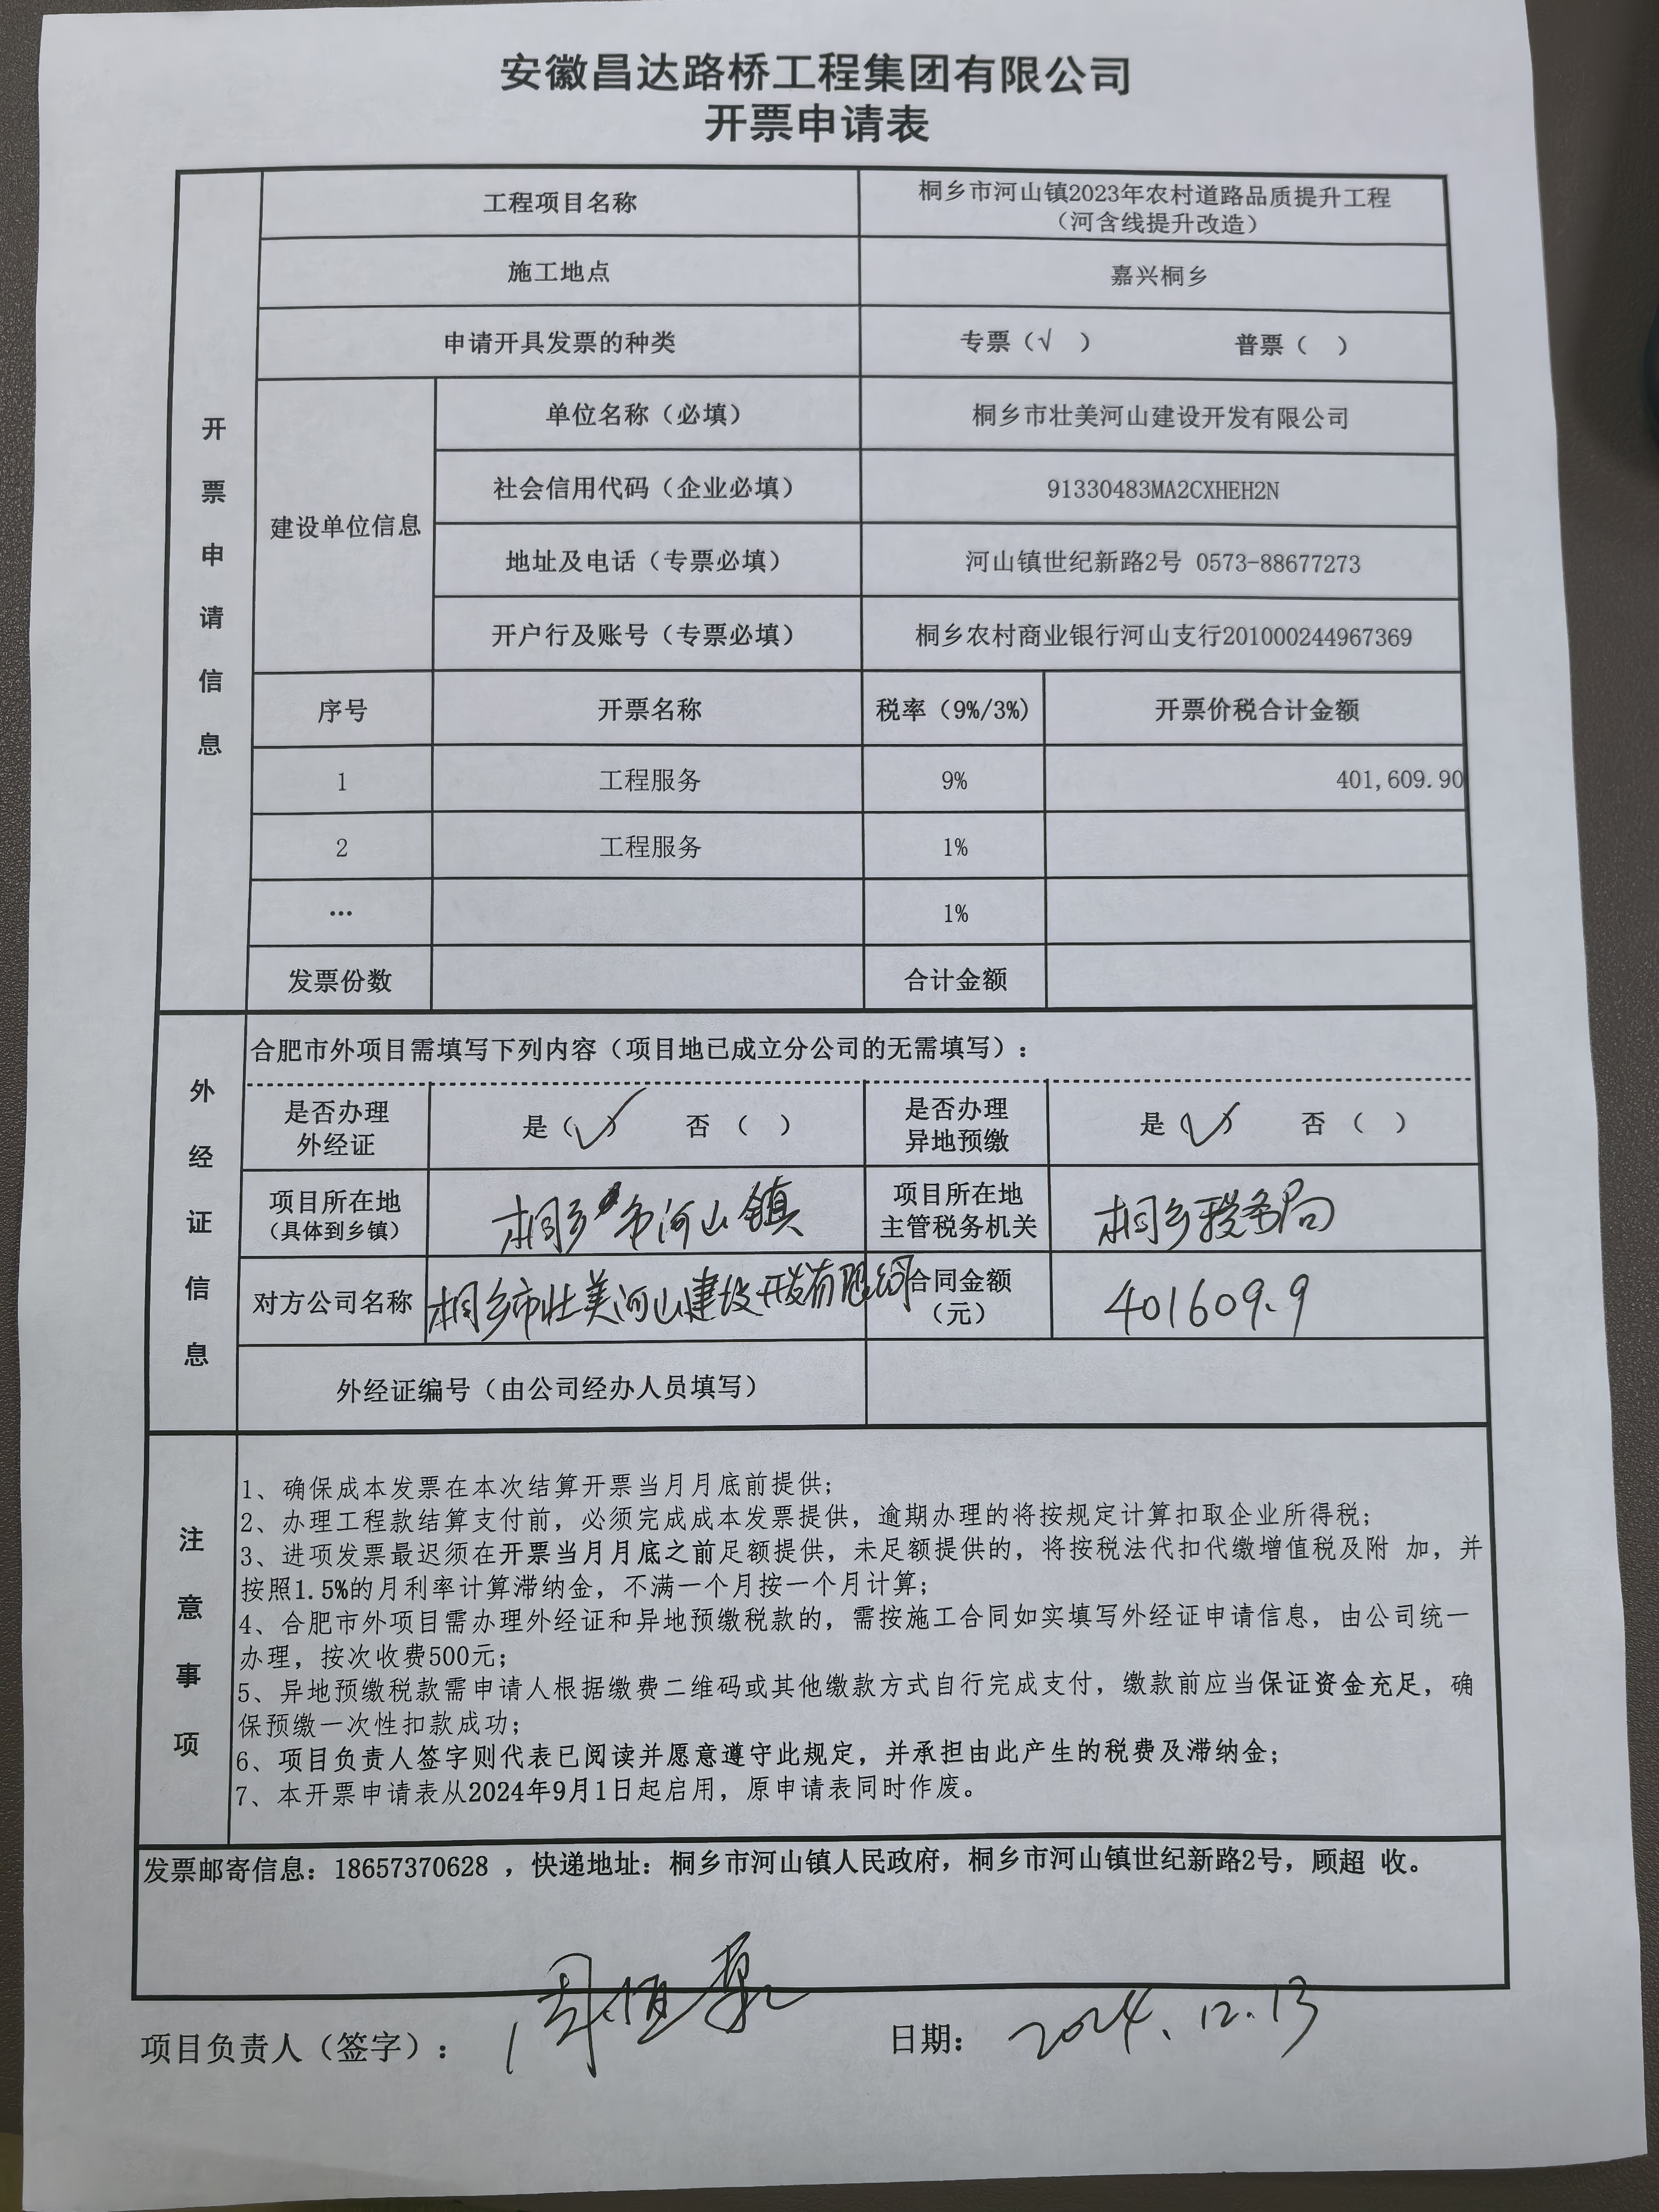 安徽昌达路桥工程集团有限公司
开票申请表
开票申请信息
工程项目名称
桐乡市河山镇2023年农村道路品质提升工程
（河含线提升改造）
施工地点
嘉兴桐乡
申请开具发票的种类
专票（√ ） 普票（ ）
建设单位信息
单位名称（必填）
桐乡市壮美河山建设开发有限公司
社会信用代码（企业必填）
91330483MA2CXHEH2N
地址及电话（专票必填）
河山镇世纪新路2号 0573-88677273
开户行及账号（专票必填）
桐乡农村商业银行河山支行201000244967369
序号 开票名称 税率（9%/3%） 开票价税合计金额
1 工程服务 9% 401,609.90
2 工程服务 1%
… 1%
发票份数 合计金额
外经证信息
合肥市外项目需填写下列内容（项目地已成立分公司的无需填写）：
是否办理
外经证
是（√） 否（ ）
是否办理
异地预缴
是（√） 否（ ）
项目所在地
（具体到乡镇）
桐乡市河山镇
项目所在地
主管税务机关
桐乡税务局
对方公司名称
桐乡市壮美河山建设开发有限公司
合同金额
（元）
401609.9
外经证编号（由公司经办人员填写）
注意事项
1、确保成本发票在本次结算开票当月月底前提供；
2、办理工程款结算支付前，必须完成成本发票提供，逾期办理的将按规定计算扣取企业所得税；
3、进项发票最迟须在开票当月月底之前足额提供，未足额提供的，将按税法代扣代缴增值税及附 加，并
按照1.5%的月利率计算滞纳金，不满一个月按一个月计算；
4、合肥市外项目需办理外经证和异地预缴税款的，需按施工合同如实填写外经证申请信息，由公司统一
办理，按次收费500元；
5、异地预缴税款需申请人根据缴费二维码或其他缴款方式自行完成支付，缴款前应当保证资金充足，确
保预缴一次性扣款成功；
6、项目负责人签字则代表已阅读并愿意遵守此规定，并承担由此产生的税费及滞纳金；
7、本开票申请表从2024年9月1日起启用，原申请表同时作废。
发票邮寄信息：18657370628 ，快递地址：桐乡市河山镇人民政府，桐乡市河山镇世纪新路2号，顾超 收。
项目负责人（签字）： 日期： 2024.12.13